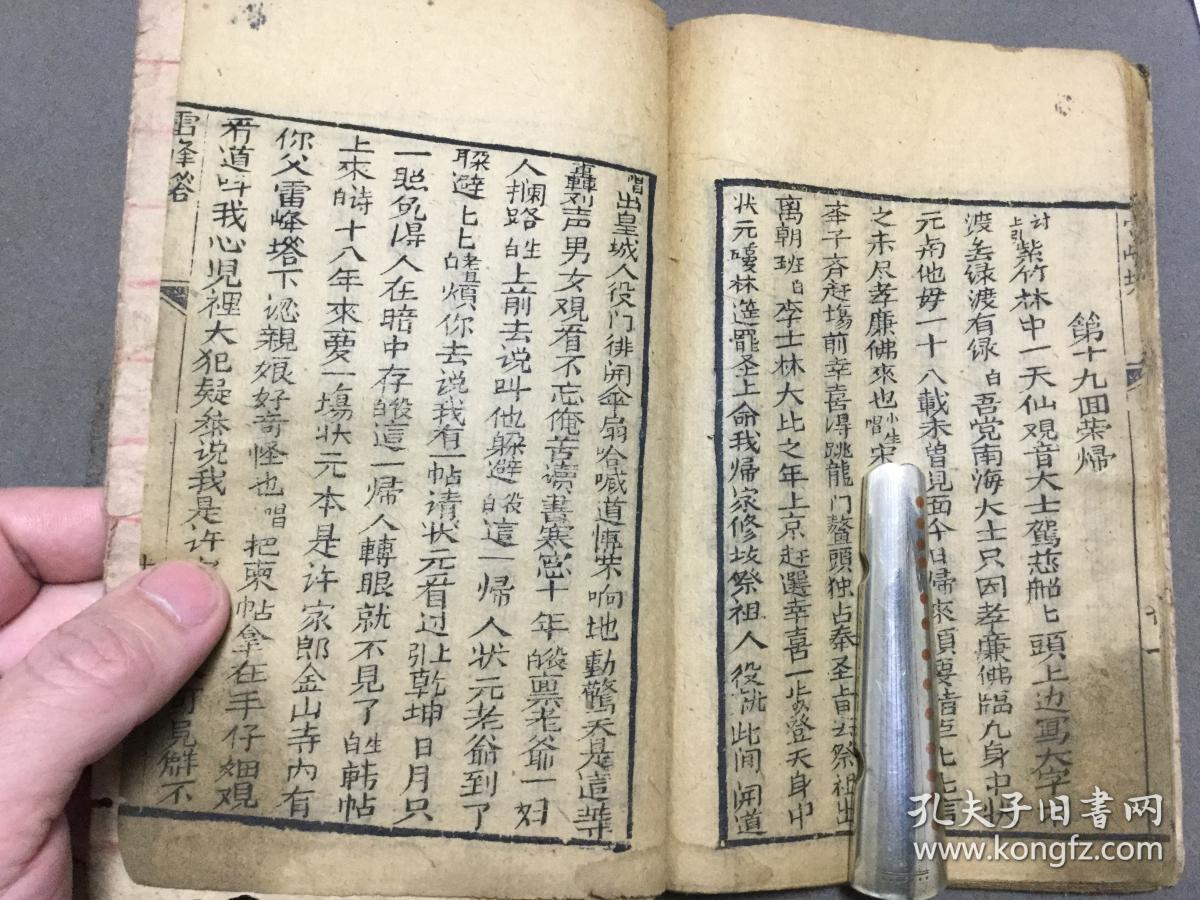 第十九回荣归
讨上引紫竹林中一天仙观音大士駕慈船匕頭上边冩大字
渡无缘渡有缘白吾党南海大士只因孝廉佛臨九身中状
元南他毋一十八載未曽見面今日帰來須要
之未尽孝廉佛來也小生唱
李子斉赶塲前幸喜淂跳龍门鰲頭独占奉圣旨去祭祖出
离朝班白李士林大比之年上京赶選幸喜一步登天身中
状元瓊林筵罷圣上命我帰家修坟祭祖人役
此间開道
唱出皇城人役门徘開傘扇哈喊道愽荣响地動驚天是這等
轟烈声男女观看不忘俺苦读書寒窓十年的役禀老爷一妇
人攔路的生上前去说叫他躱避白役這一帰人状元老爺到了
躱避上匕白老旦煩你去说我有一帖请状元看过上引乾坤日月只
一照免淂人在暗中存的役這一帰人轉眼就不見了白生帏帖
上來白诗十八年來夣一塲状元本是许家郎金山寺内有
你父雷峰塔下認親娘好奇怪也唱把柬帖拿在手仔细观
看道叫我心児裡大犯疑叅说我是许
可見觧不
雷峰塔
孔夫子旧书网
www.kongfz.com